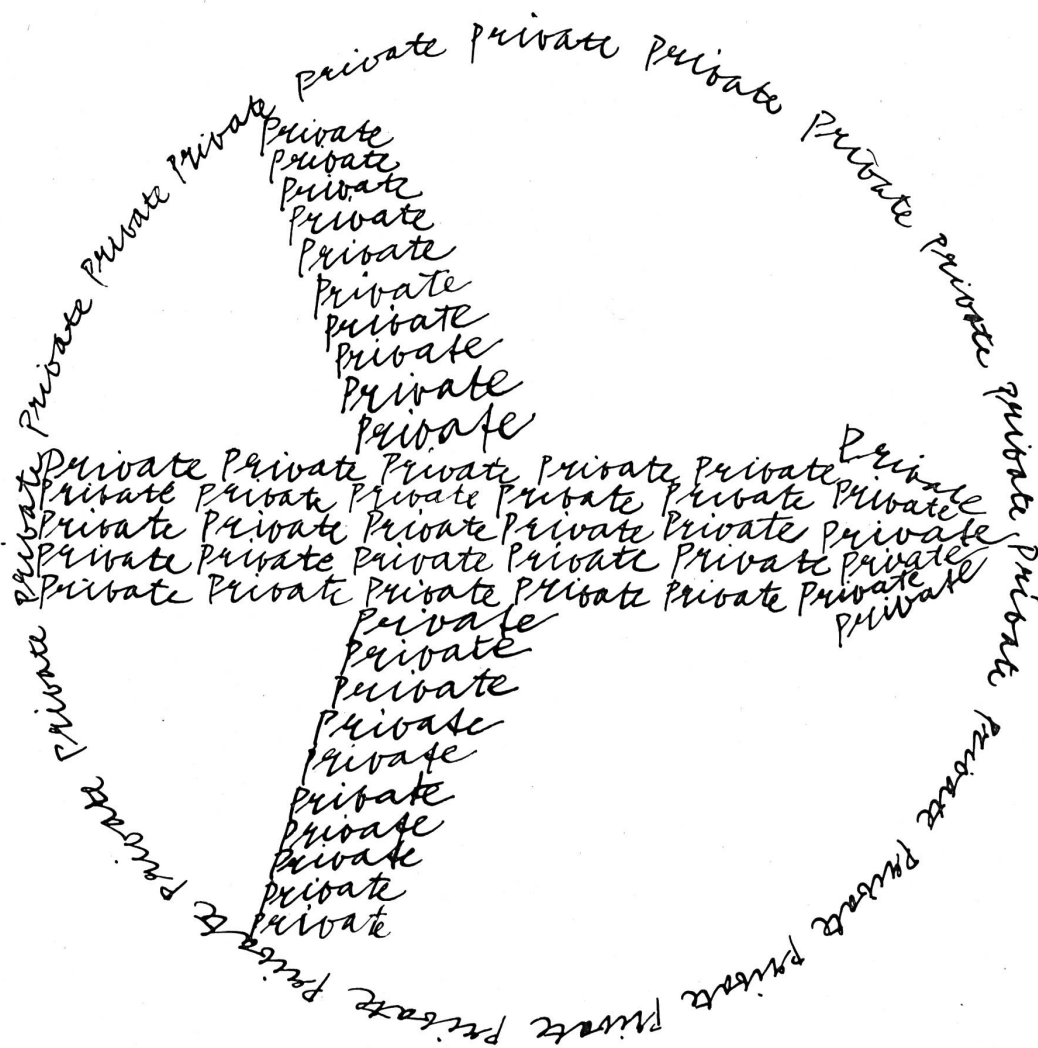 private private private Private private private Private private private private Private Private Private Private private private Private private private
Private
Private
Private
Private
Private
Private
Private
Private
Private
Private
Private Private Private Private Private Private
Private Private Private Private Private Private
Private Private Private Private Private Private
Private Private Private Private Private Private
Private Private Private Private Private Private
Private
Private
Private
Private
Private
Private
Private
Private
Private
Private
Private